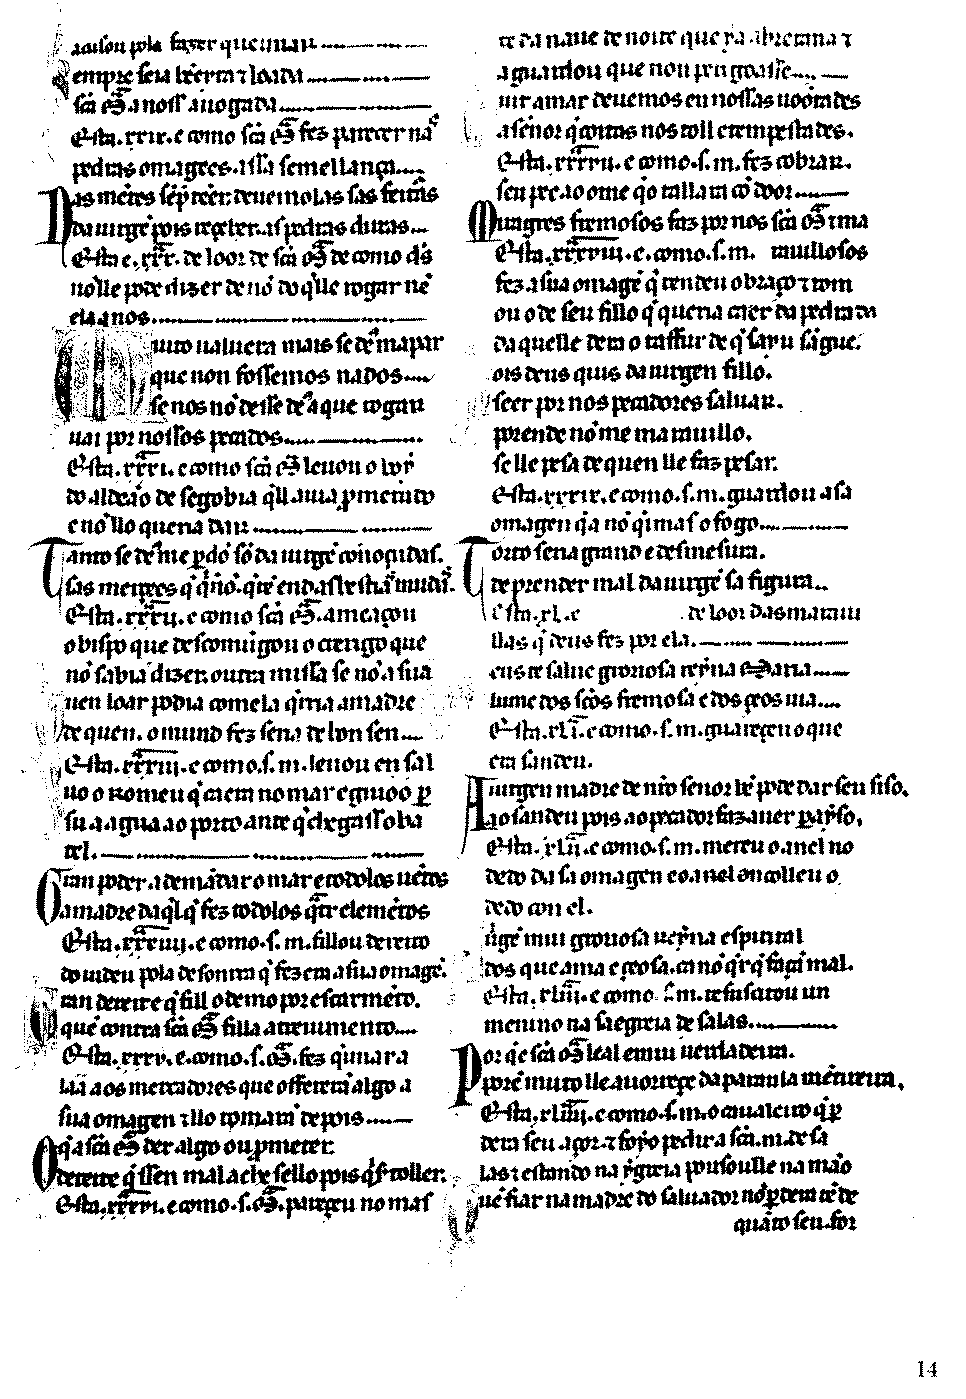 auison pola fazer queimar
empre seia bẽeyta ⁊ loada
sc̃a M̃ a noss auogada
Esta .xxix. e como sc̃a M̃ fez parecer nas
pedras omagẽes . a ssa semellança
Nas mẽtes sẽpr teer. deuemolas sas feituras
da uirgẽ pois reçeber. as pedras duras
Esta e .xxx. de loor de sc̃a M̃ de como d̃s
nõ lle pode dizer de nõ do q̃ lle rogar nẽ
ela a nos
Muito ualuera mais se d̃s m'apar
que non fossemos nados
se nos nõ desse d̃s a que rogar
uai por nossos pecados
Esta .xxxi. e como sc̃a M̃ leuou o boy
do aldeão de segobia q̃ ll auia pmetudo
e nõ llo queria dar
Tanto se d̃s me pdõ sõ da uirgẽ coñoçudas.
sas merçees
Esta .xxxii. e como sc̃a M̃ . ameaçou
o bispo que descomũgou o crerigo que
nõ sabia dizer. outra missa se nõ a sua
uen loar podia como ela q̃ria a madre
de quen. o mund fez seria de bon sen
Esta .xxxiii. e como .s. m. leuou en sal
uo o romeu q̃ caera no mar e guioo p
su a agua ao porto ante q̃ chegass o ba
tel.
Gran poder. a de mãdar o mar e todolos uẽtos
a madre daq̃l q̃ fez todolos q̃tr elemẽtos
Esta .xxxiiii. e como .s. m. fillou dereito
do iudeu pola desonrra q̃ fezera a sua omagẽ.
Gran dereit e q̃ fill o demo por escarmẽto.
quẽ contra sc̃a M̃ filla atreuimento
Esta .xxxv. e. como .s. M̃ . fez q̃imar a
lãa aos mercadores que offereran algo a
sua omagen ⁊ llo tomaran depois
O q̃ a sc̃a M̃ der algo ou pmeter.
dereit e q̃ ss en mal ache se llo pois q̃r toller.
Esta .xxxvi. e como .s. M̃ . pareçeu no mas
te da naue de noite que ya a bretaña ⁊
a guardou que non perigoasse
uit amar deuemos en nossas uoontades
a señor q̃ coitas nos toll e tempestades.
Esta .xxxvii. e como .s. m. fez cobrar.
seu pee ao ome q̃ o tallara cõ door
Miragres fremosos faz por nos sc̃a M̃ ⁊ ma
rauillosos
Esta .xxxviii. e. como .s. m.
fez a sua omagẽ q̃ tendeu o braço ⁊ tom
ou o de seu fillo q̃ queria caer da pedrada
da quelle dera o taffur de q̃ sayu sãgue.
ois deus quis da uirgen fillo.
seer por nos pecadores saluar.
porende nõ me marauillo.
se lle pesa de quen lle faz pesar.
Esta .xxxix. e como .s. m. guardou a sa
omagen q̃ a nõ q̃imas o fogo
Torto seria grand e desmesura.
de prender mal da uirgẽ sa figura
Esta .xl. e de loor das marauil
llas q̃ deus fez por ela.
eus te salue groriosa reyña Maria
lume dos sc̃os fremosa e dos çeos uia
Esta .xli. e como .s. m. guareçeu o que
era sandeu.
A uirgen madre de nr̃o señor bẽ pode dar seu siso.
ao sandeu pois ao pecador faz auer parayso.
Esta .xlii. e como .s. m. meteu o anel no
dedo da sa omagen e o anel encolleu o
dedo con el.
irgẽ mui groriosa reyña espirital
dos que ama e çeosa. ca nõ q̃r q̃ façã mal.
Esta .xliii. e como .s. m. resusçitou un
menino na sa egreia de salas.
Por q̃ e sc̃a M̃ leal e mui uerdadeira.
porẽ muito ll e auorreçe da paraula mẽtireira.
Esta .xliiii. e como .s. m. o caualeiro q̃ p
dera seu açor ⁊ foyo pedir a sc̃a m. de sa
las ⁊ estando na ygreia pousoulle na mão
uẽ fiar na madre do saluador nõ pdera rẽ de
quãto seu. for
14